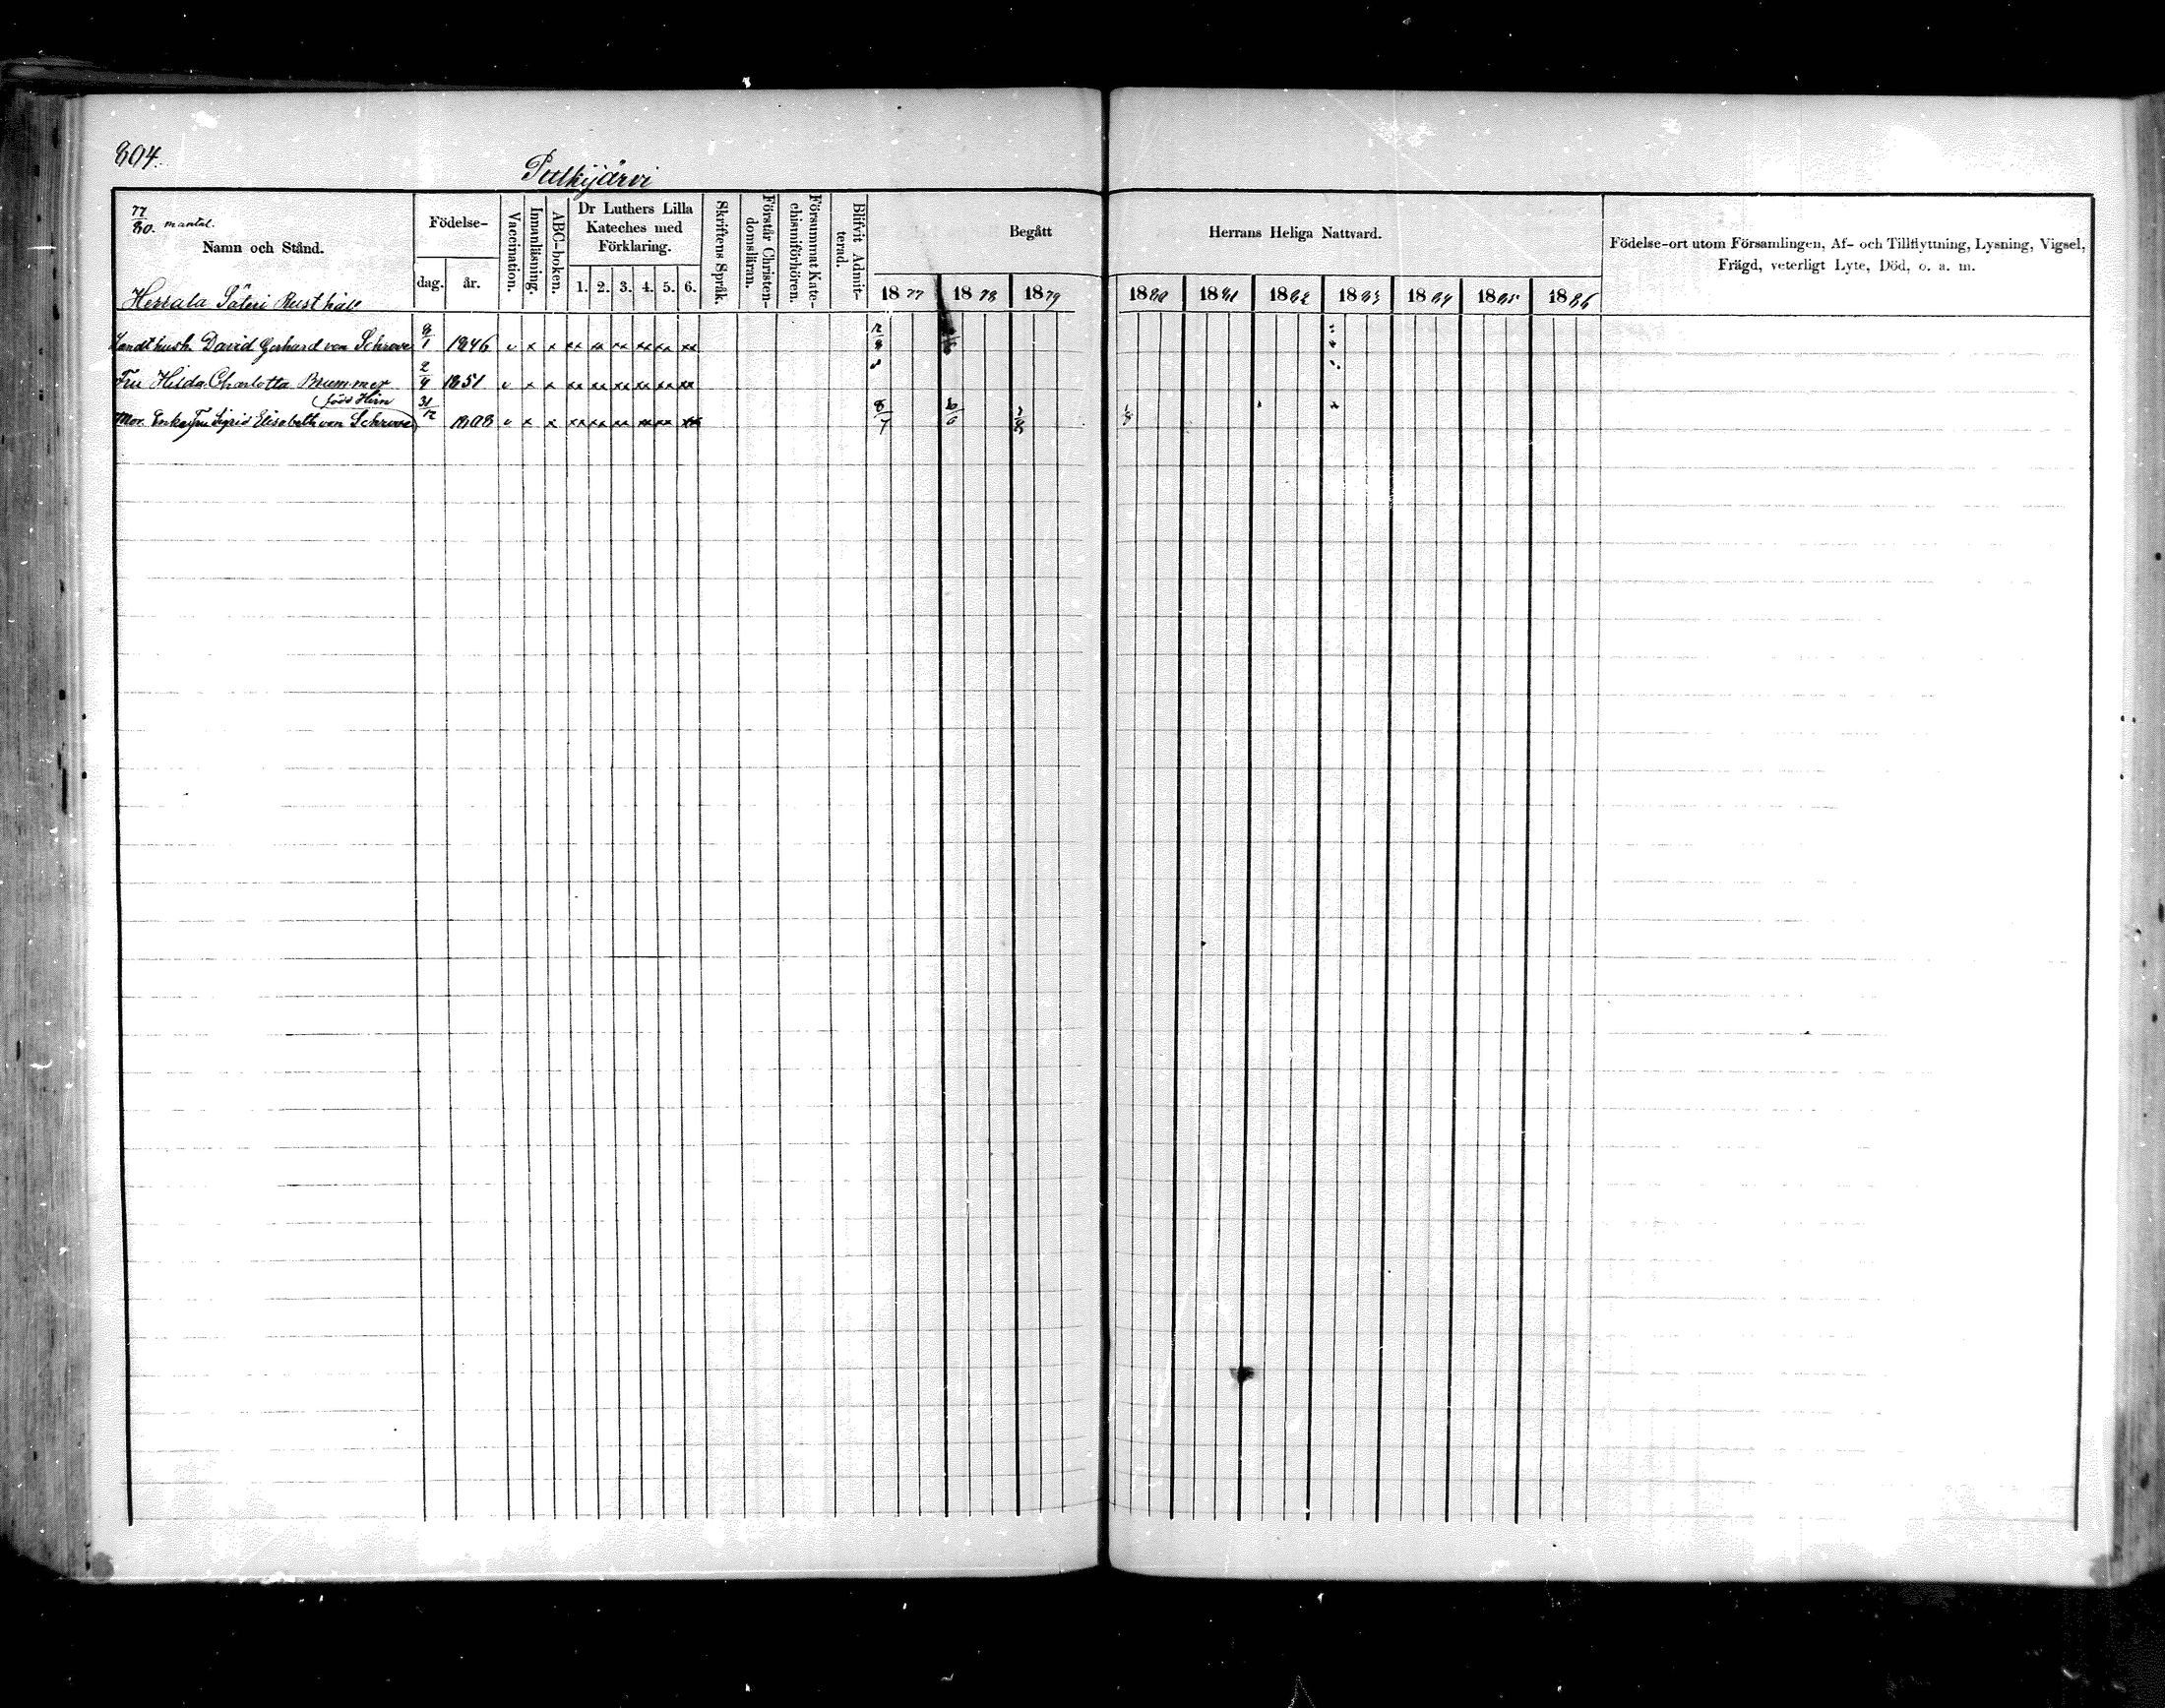 804.
Pulkijärvi
77/80. mantal.
Namn och Stånd.
Födelse-
dag. år.
Vaccination.
Innanläsning.
ABC-boken.
Dr Luthers Lilla Kateches med Förklaring.
1. 2. 3. 4. 5. 6.
Skriftens Språk.
Förstår Christen-domsläran.
Försummat Kate-chismiförhören.
Blifvit Admit-terad.
Begått Herrans Heliga Nattvard.
1877 1878 1879 1880 1881 1882 1883 1884 1885 1886
Födelse-ort utom Församlingen, Af- och Tillflyttning, Lysning, Vigsel,
Frägd, veterligt Lyte, Död, o. a. m.
Herrala Säteri Rusthåll
Landthush. David Gerhard von Schrove 8/1 1846 v x x xx xx xx xx xx xx
Fru Hilda Charlotta Brummer 2/4 1851 v x x xx xx xx xx xx xx
född Hirn
Mor. Enkefru Sigrid Elisabeth von Schrove 31/12 1808 v x x xx xx xx xx xx xx 8/7